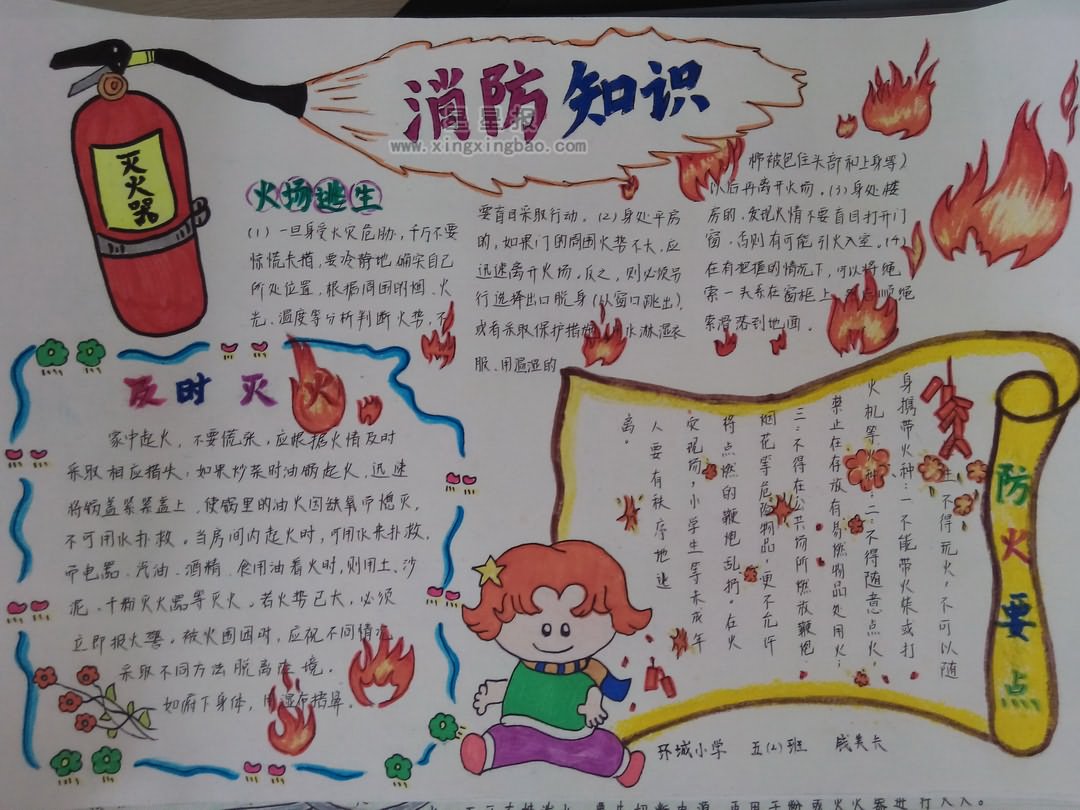 消防知识
星星报
www.xingxingbao.com
灭火器
火场逃生
(1)一旦身受火灾危胁,千万不要
惊慌失措,要冷静地确实自己
所处位置,根据周围的烟、火
光、温度等分析判断火势,不
要盲目采取行动。(2)身处平房
的,如果门的周围火势不大,应
迅速离开火场。反之,则必须另
行选择出口脱身(从窗口跳出),
或有采取保护措施 水淋湿衣
服、用温湿的
棉被包住头部和上身等)
以后再离开火场。(3)身处楼
房的,发现火情不要盲目打开门
窗,否则有可能引火入室。(4)
在有把握的情况下,可以将绳
索一头系在窗框上, 顺绳
索滑落到地面。
反时灭火
家中起火,不要慌张,应根据火情及时
采取相应措失,如果炒菜时油锅起火,迅速
将锅盖紧紧盖上,使锅里的油火因缺氧而熄灭,
不可用水扑救。当房间内起火时,可用水来扑救,
而电器、汽油、酒精、食用油着火时,则用土、沙
泥、干粉灭火器等灭火。若火势已大,必须
立即报火警。被火围困时,应视不同情况
采取不同方法脱离险境。
如府下身体,用湿布捂鼻。
防火要点
生不得玩火,不可以随
身携带火种:一不能带火柴或打
火机等火种;二不得随意点火,
禁止在存放有易燃物品处用火;
三:不得在公共场所燃放鞭炮
烟花等危险物品,更不允许
将点燃的鞭炮乱扔。在火
灾现场,小学生等未成年
人要有秩序地逃
离。
环城小学 五(2)班 钱美